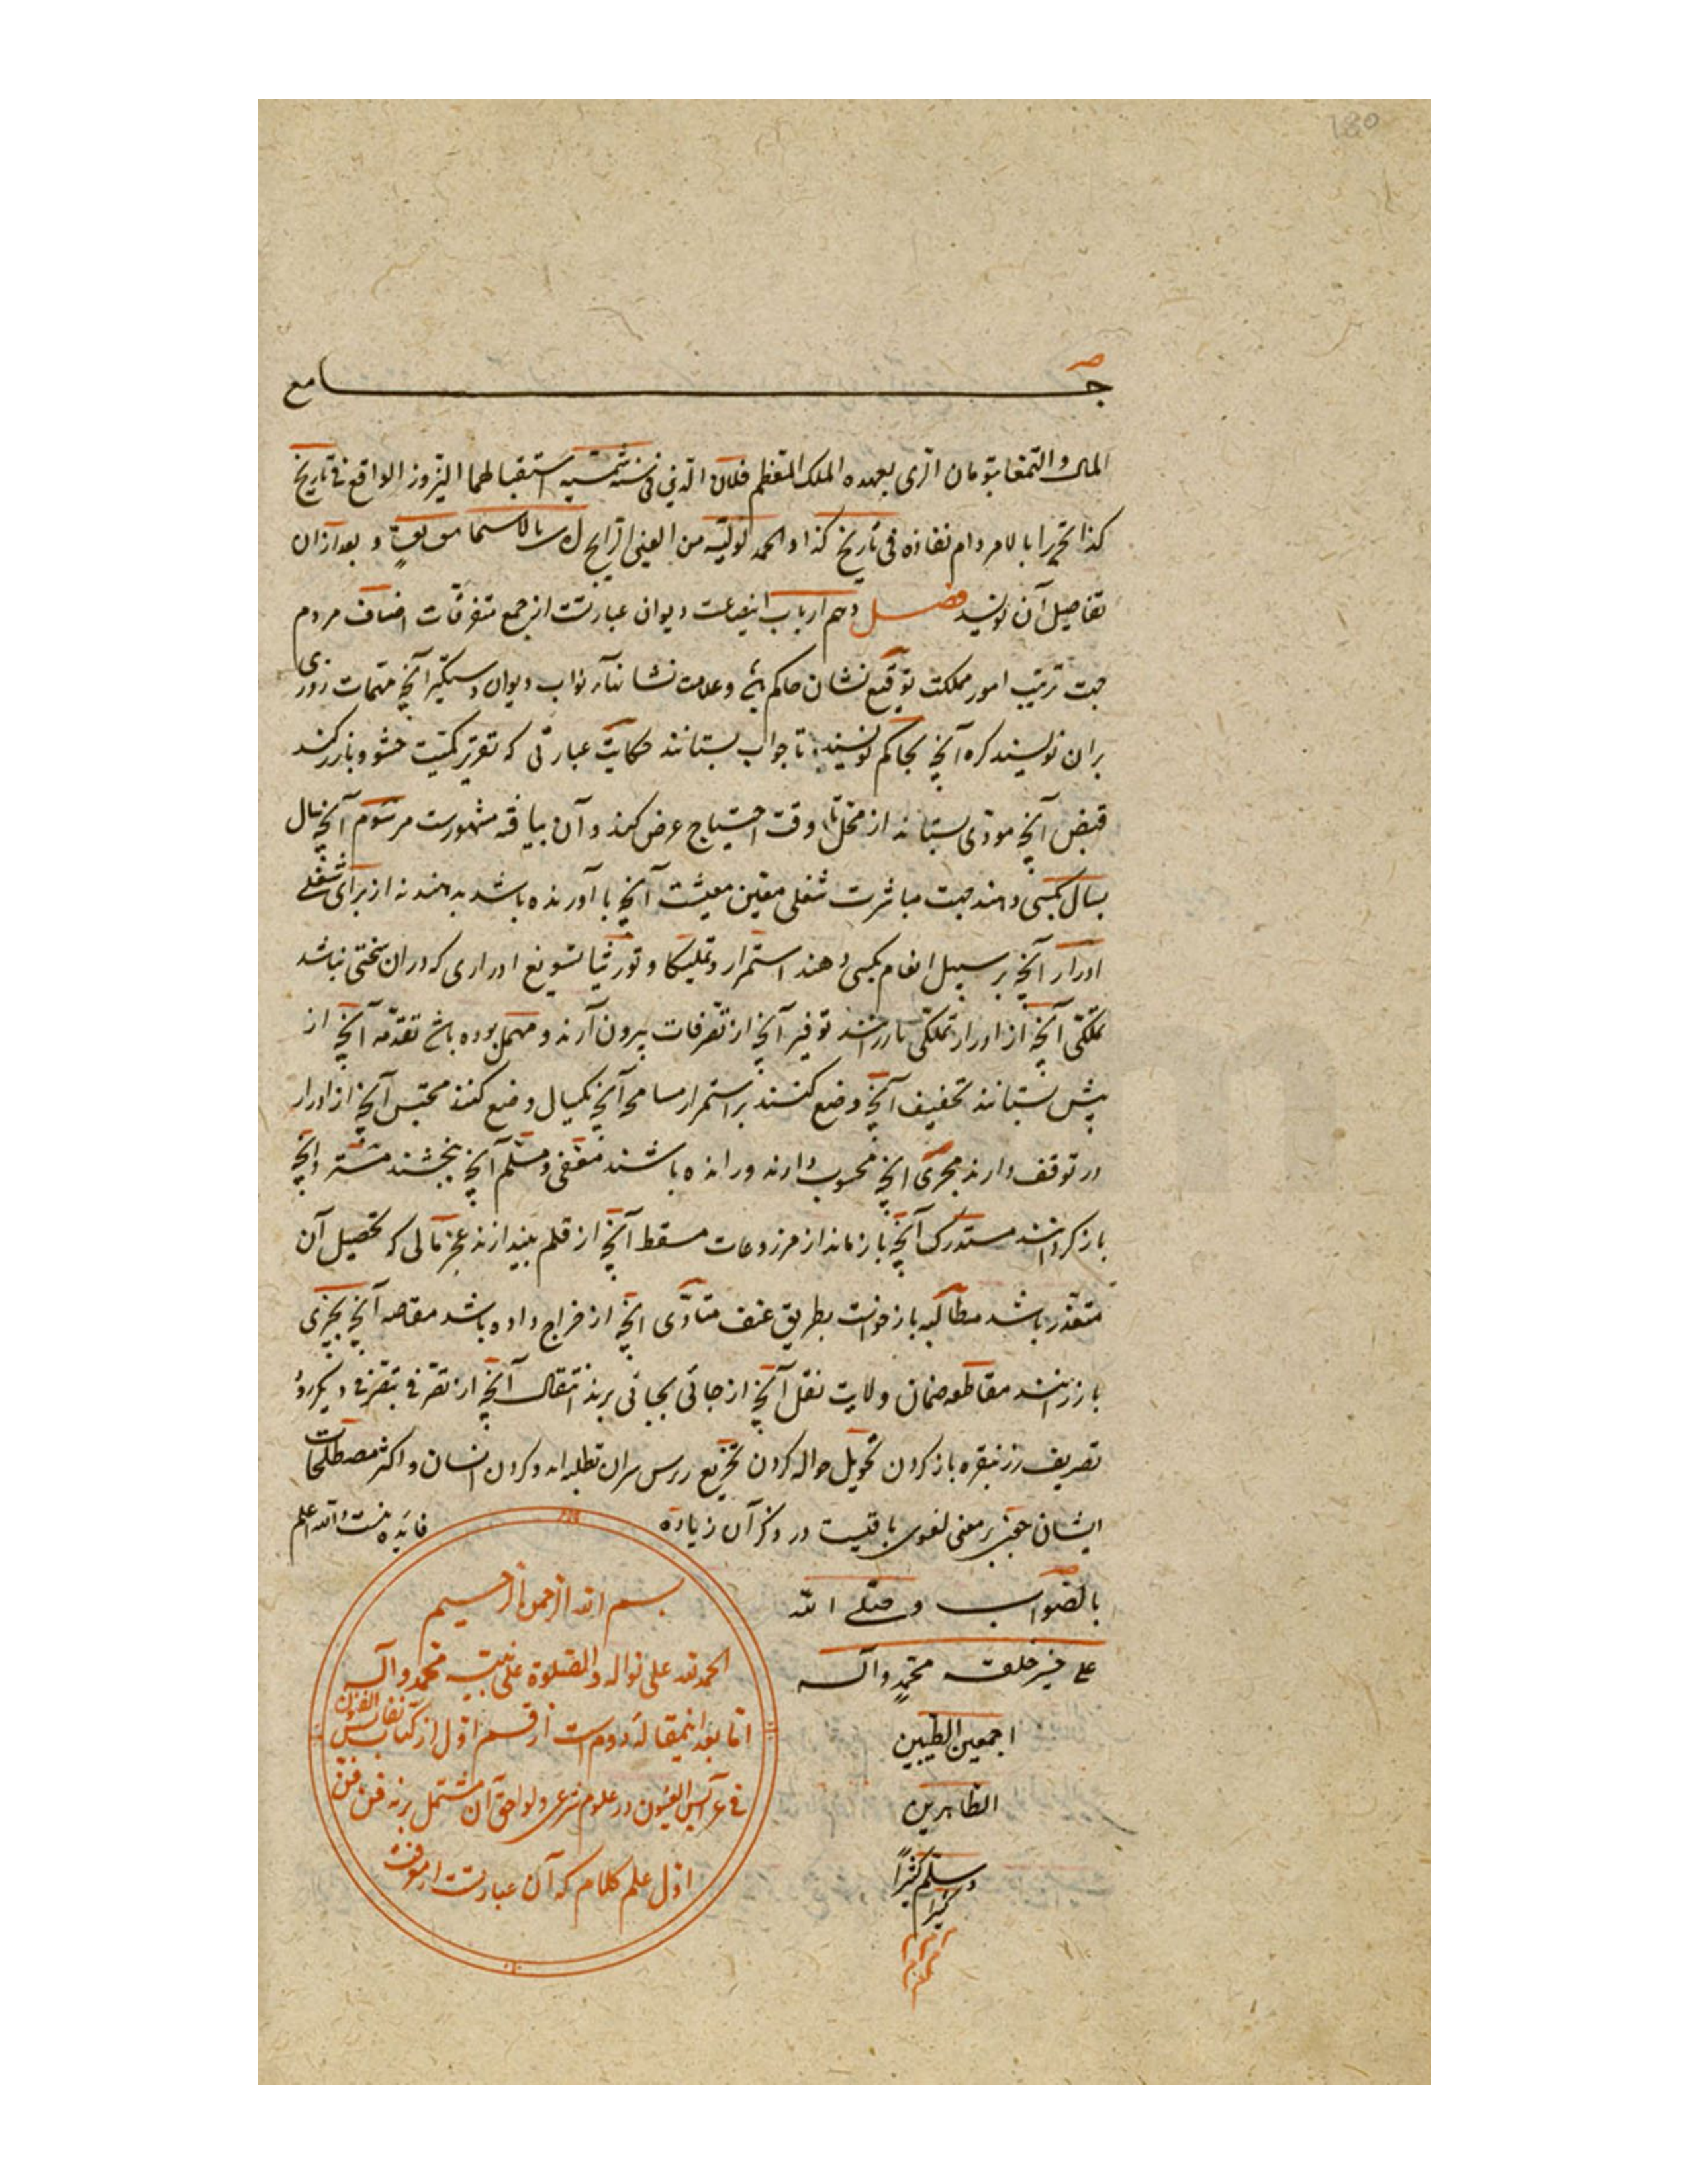 180
جامع
المال و التمغا بتومان الری بعهده الملک المعظم فلان الدین فی سنه شمسیه استقبالهما النیروز الواقع فی تاریخ
کذا تحریرا بالامر دام نفاذه فی تاریخ کذا و الحمد لولیه من العین الرایج و بعد از آن
تفاصیل آن نویسند فصل دهم ارباب دیوان عبارتست از جمع متفرقات اصناف مردم
جهت ترتیب امور مملکت توقیع نشان حاکم و علامت نشان نواب دیوان دستگیر آنچه مهمات روزی
بران نویسند کره آنچه بحاکم نویسند تا جواب بستانند حکایت عبارتی که تقریر کمیت حشو و بارز کند
قبض آنچه مودی بستاند از محل تا وقت احتیاج عرض کند و آن بیافته مشهورست مرسوم آنچه سال
بسال بکسی دهند جهت مباشرت شغلی معین معیشت آنچه با آورنده باشد بدهند نه از برای شغلی
ادرار آنچه بر سبیل انعام بکسی دهند استمرار و تملیکا و توریثا تسویغ ادراری که در آن سختی نباشد
تملکی آنچه از ادرار تملکی بازرانند توفیر آنچه از تصرفات بیرون آرند و مهمل بوده باشد تقدمه آنچه از
پیش بستانند تخفیف آنچه وضع کنند بر استمرار مسامحه آنچه یکسال وضع کنند محتبس آنچه از ادرار
در توقف دارند مجری آنچه محسوب دارند و رانده باشند معفی و مسلم آنچه بخشند مسترد آنچه
باز گردانند مستدرک آنچه باز ماند از مزروعات مسقط آنچه از قلم بیندازند عجز مالی که تحصیل آن
متعذر باشد مطالبه بازخواست بطریق عنف متادی آنچه از خراج داده باشد مقاصه آنچه بچیزی
بازرانند مقاطعه ضمان ولایت نقل آنچه از جائی بجائی برند انتقال آنچه از تصرفی بتصرفی دیگر رود
تصریف زر بنقره باز کردن تحویل حواله کردن توزیع و اکثر مصطلحات
ایشان بر معنی لغوی باقیست در ذکر آن زیاده فایده نیست و الله اعلم
بالصواب و صلی الله
علی خیر خلقه محمد و آله
اجمعین الطیبین
الطاهرین
و سلم کثیرا
کثیرا
بسم الله الرحمن الرحیم
الحمد لله علی نواله و الصلوة علی نبیه محمد و آله
اما بعد اینمقاله دوم است از قسم اول از کتاب نفایس الفنون
فی عرایس العیون در علوم شرعی و لواحق آن مشتمل بر نه فن فن
اول علم کلام که آن عبارتست از معرفت